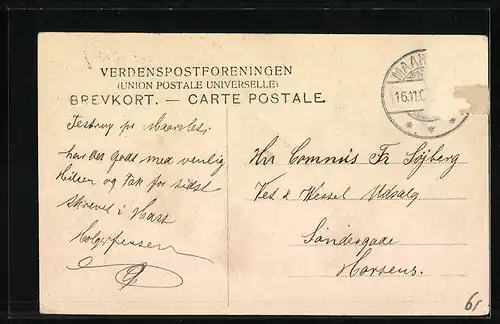 VERDENSPOSTFORENINGEN
(UNION POSTALE UNIVERSELLE)
BREVKORT. — CARTE POSTALE.
MAAR
16.11.0
Testrup pr Maarslet.
hav det godt med venlig
Hilsen og Tak for sidst
skrevet i Hast
Holger Jensen
Hr Commis Fr Söjberg
Vett & Wessel Udsalg
Søndergade
Horsens.
61